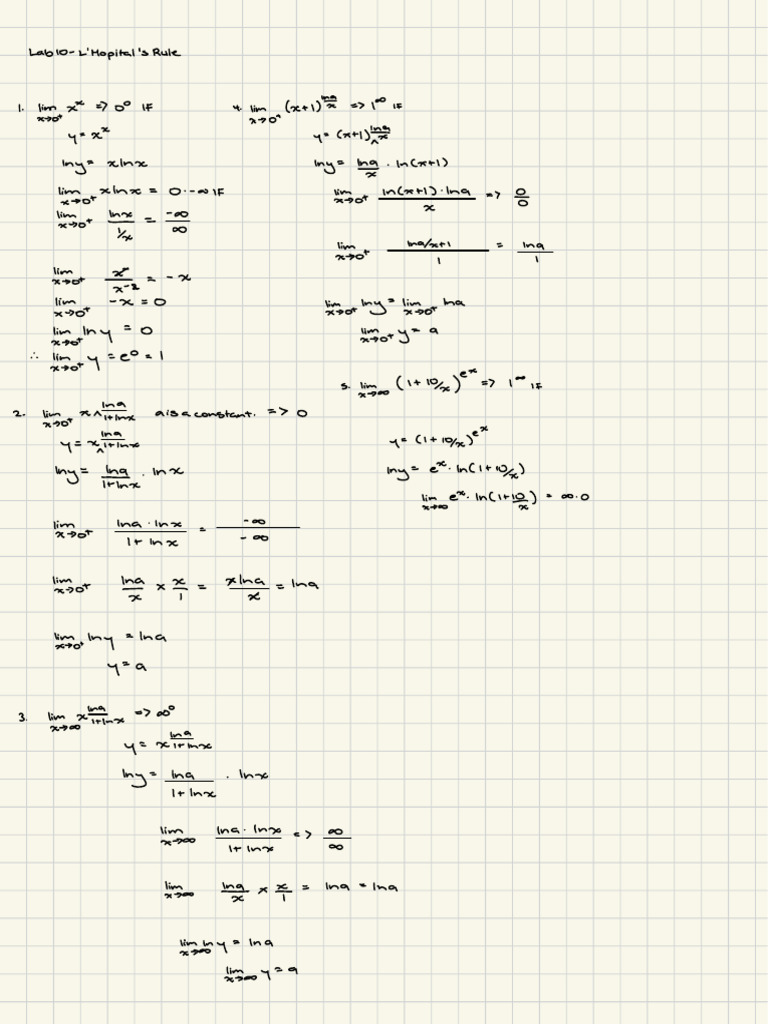 Lab 10 - L'Hopital's Rule
1. lim x→0⁺ x^x => 0⁰ IF
y = x^x
lny = xlnx
lim x→0⁺ xlnx = 0·-∞ IF
lim x→0⁺ lnx / 1/x = -∞/∞
lim x→0⁺ x⁻¹/x⁻² = -x
lim x→0⁺ -x = 0
lim x→0⁺ ln y = 0
∴ lim x→0⁺ y = e⁰ = 1
2. lim x→0⁺ x^(lna/1+lnx) a is a constant. => 0
y = x^(lna/1+lnx)
lny = lna/1+lnx · lnx
lim x→0⁺ lna·lnx/1+lnx = -∞/-∞
lim x→0⁺ lna/x × x/1 = xlna/x = lna
lim x→0⁺ lny = lna
y = a
3. lim x→∞ x^(lna/1+lnx) => ∞⁰
y = x^(lna/1+lnx)
lny = lna/1+lnx · lnx
lim x→∞ lna·lnx/1+lnx => ∞/∞
lim x→∞ lna/x × x/1 = lna = lna
lim x→∞ lny = lna
lim x→∞ y = a
4. lim x→0⁺ (x+1)^(lna/x) => 1^∞ IF
y = (x+1)^(lna/x)
lny = lna/x · ln(x+1)
lim x→0⁺ ln(x+1)·lna/x => 0/0
lim x→0⁺ lna/x+1 / 1 = lna/1
lim x→0⁺ lny = lim x→0⁺ lna
lim x→0⁺ y = a
5. lim x→∞ (1+10/x)^(e^x) => 1^∞ IF
y = (1+10/x)^(e^x)
lny = e^x·ln(1+10/x)
lim x→∞ e^x·ln(1+10/x) = ∞·0